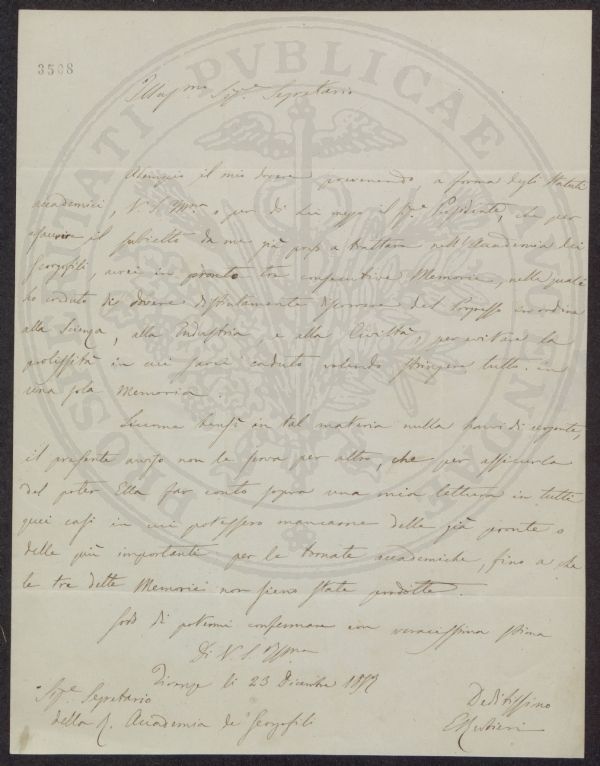 3568
PROSPERITATI PVBLICAE AVGENDAE
Illus.mo Sig.e Segretario
Adempio il mio dovere prevenendo a forma degli Statuti
accademici, V. S. Ill.ma e per di Lei mezzo il Sig.e Presidente, che per
esaurire il subietto da me già preso a trattare nell'Accademia dei
Georgofili, avrei in pronto tre consecutive Memorie, nelle quali
ho creduto di dovere distintamente discorrere del Progresso in ordine
alla Scienza, alla Industria, e alla Civiltà, per evitare la
prolissità in cui sarei caduto volendo stringere tutto in
una sola Memoria.
Siccome in tal materia nulla havvi di urgente,
il presente avviso non le serva per altro, che per assicurarla
del poter Ella far conto sopra una mia lettura in tutti
quei casi in cui potessero mancarne delle già pronte o
delle più importanti per le tornate accademiche, fino a che
le tre dette Memorie non sieno state prodotte.
Godo di potermi confermare con veracissima stima
Di V. S. Ill.ma
Firenze li 23 Dicembre
Sig.e Segretario
della R. Accademia de' Georgofili
Devotissimo